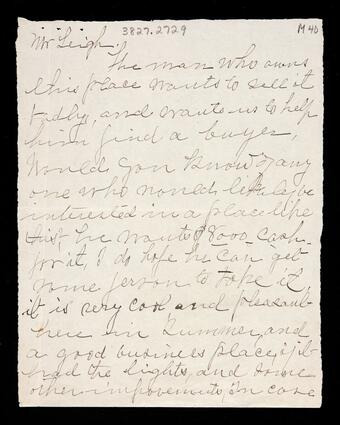 3827.2729
M 40
Mr Leigh,
The man who owns
this place wants to sell it
badly, and wants us to help
him find a buyer,
Would you know of any
one who would likely be
interested in a place like
this, he wants $8000 cash
for it, I do hope he can get
some person to take it,
it is very cool and pleasant
here in Summer, and
a good business place, if it
had the lights, and some
other improvements, in case